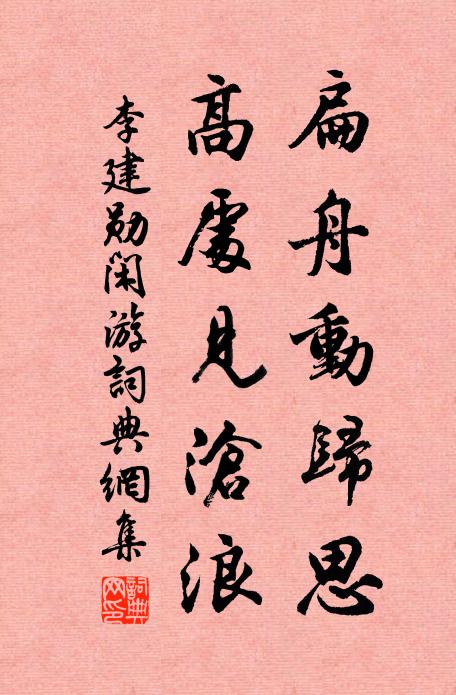 扁舟動歸思
高處見滄浪
李建勛閑游詞典網集
詞典网印